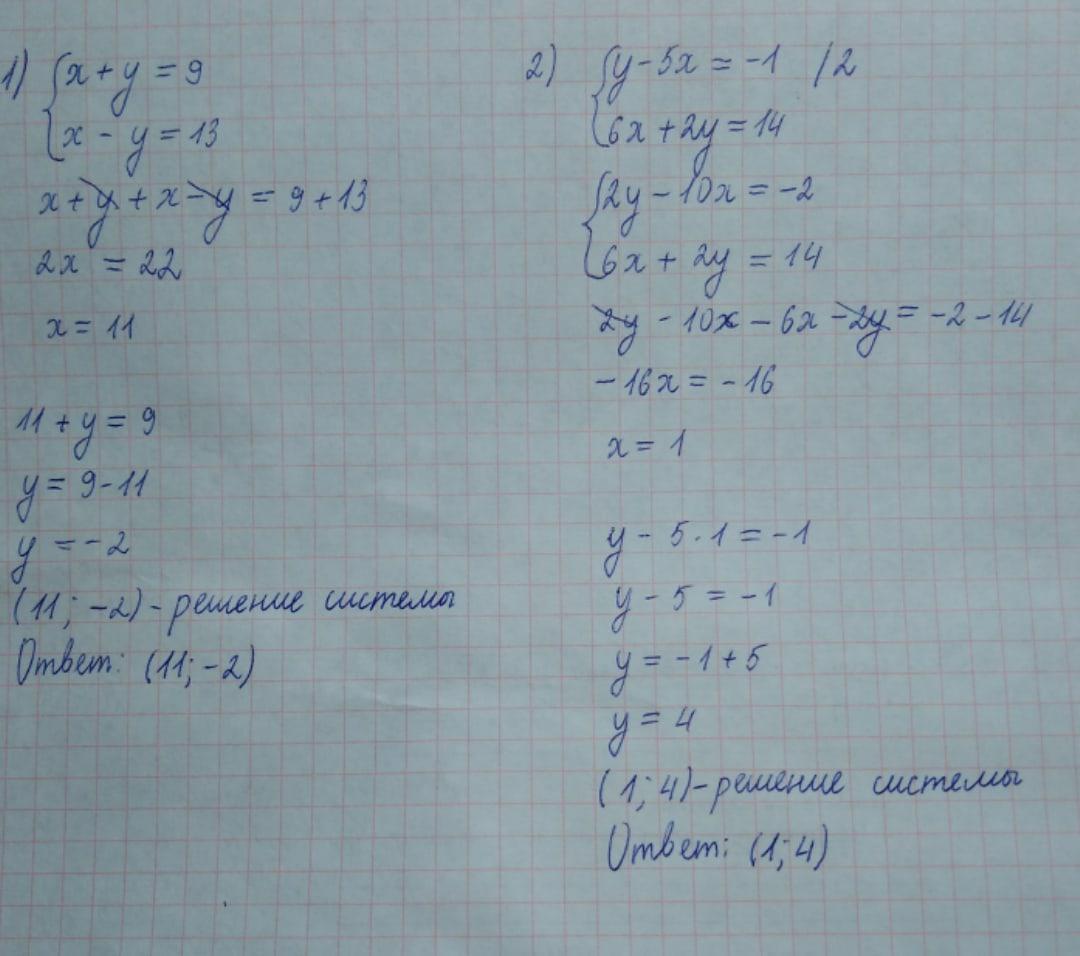 1) {x + y = 9
x - y = 13
x + y + x - y = 9 + 13
2x = 22
x = 11
11 + y = 9
y = 9 - 11
y = -2
(11; -2) - решение системы
Ответ: (11; -2)
2) {y - 5x = -1 /2
6x + 2y = 14
{2y - 10x = -2
6x + 2y = 14
2y - 10x - 6x - 2y = -2 - 14
-16x = -16
x = 1
y - 5 · 1 = -1
y - 5 = -1
y = -1 + 5
y = 4
(1; 4) - решение системы
Ответ: (1; 4)